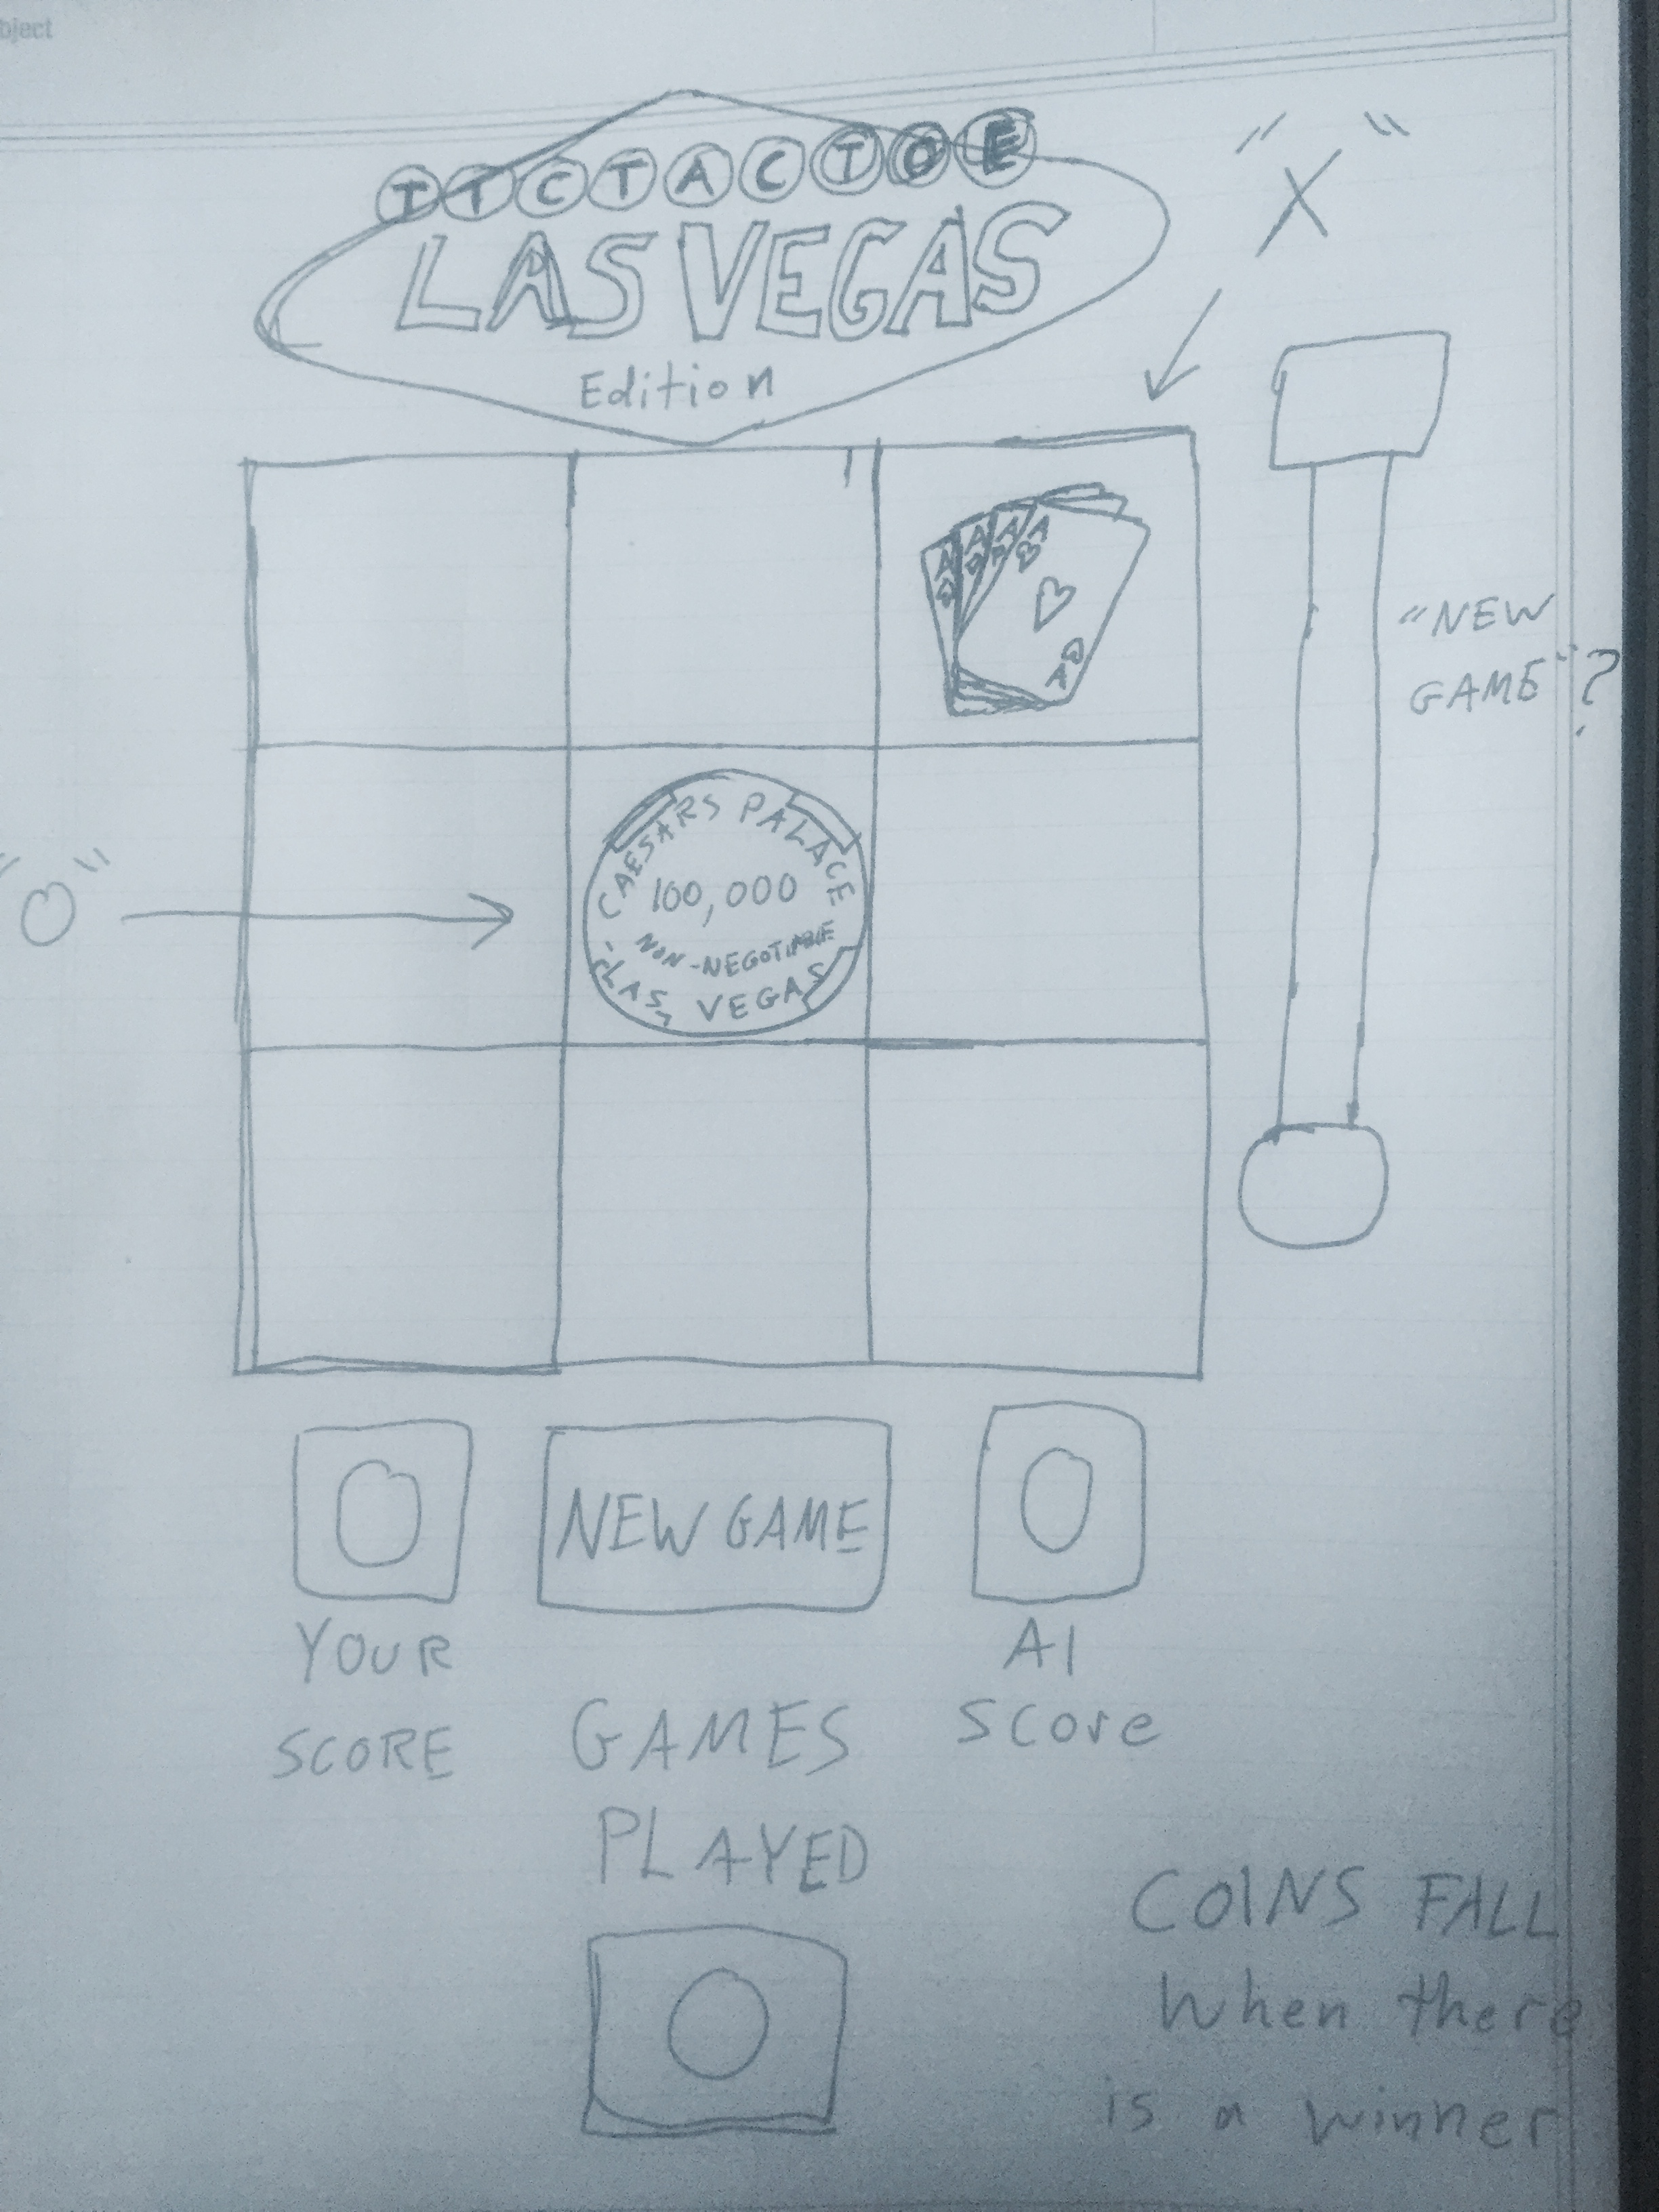 bject
TICTACTOE
LAS VEGAS
Edition
"X"
A A A A
A
"NEW
GAME"?
"O"
CAESARS PALACE
100,000
NON-NEGOTIABLE
LAS VEGAS
0
NEW GAME
0
YOUR
SCORE
AI
Score
GAMES
PLAYED
0
COINS FALL
When there
is a winner